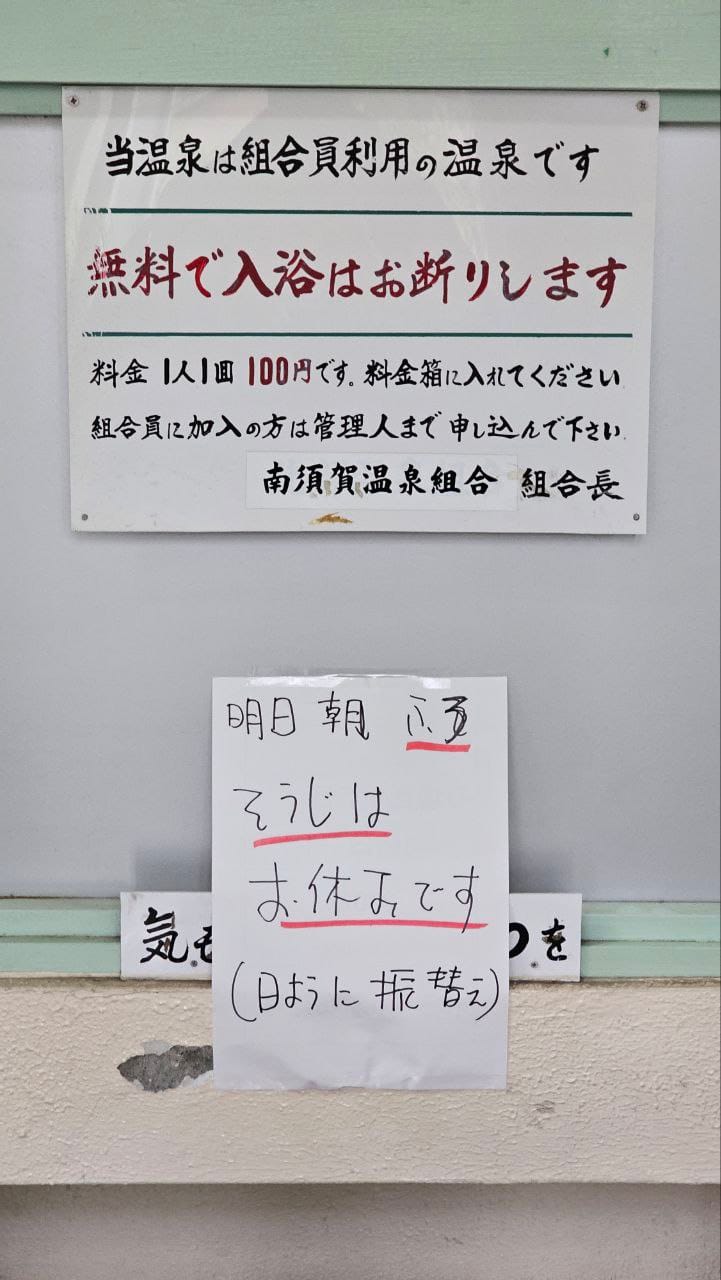 当温泉は組合員利用の温泉です
無料で入浴はお断りします
料金 1人1回 100円です。料金箱に入れてください
組合員に加入の方は管理人まで申し込んで下さい.
南須賀温泉組合 組合長
明日朝
そうじは
お休みです
(日ように振替え)
気も
つを